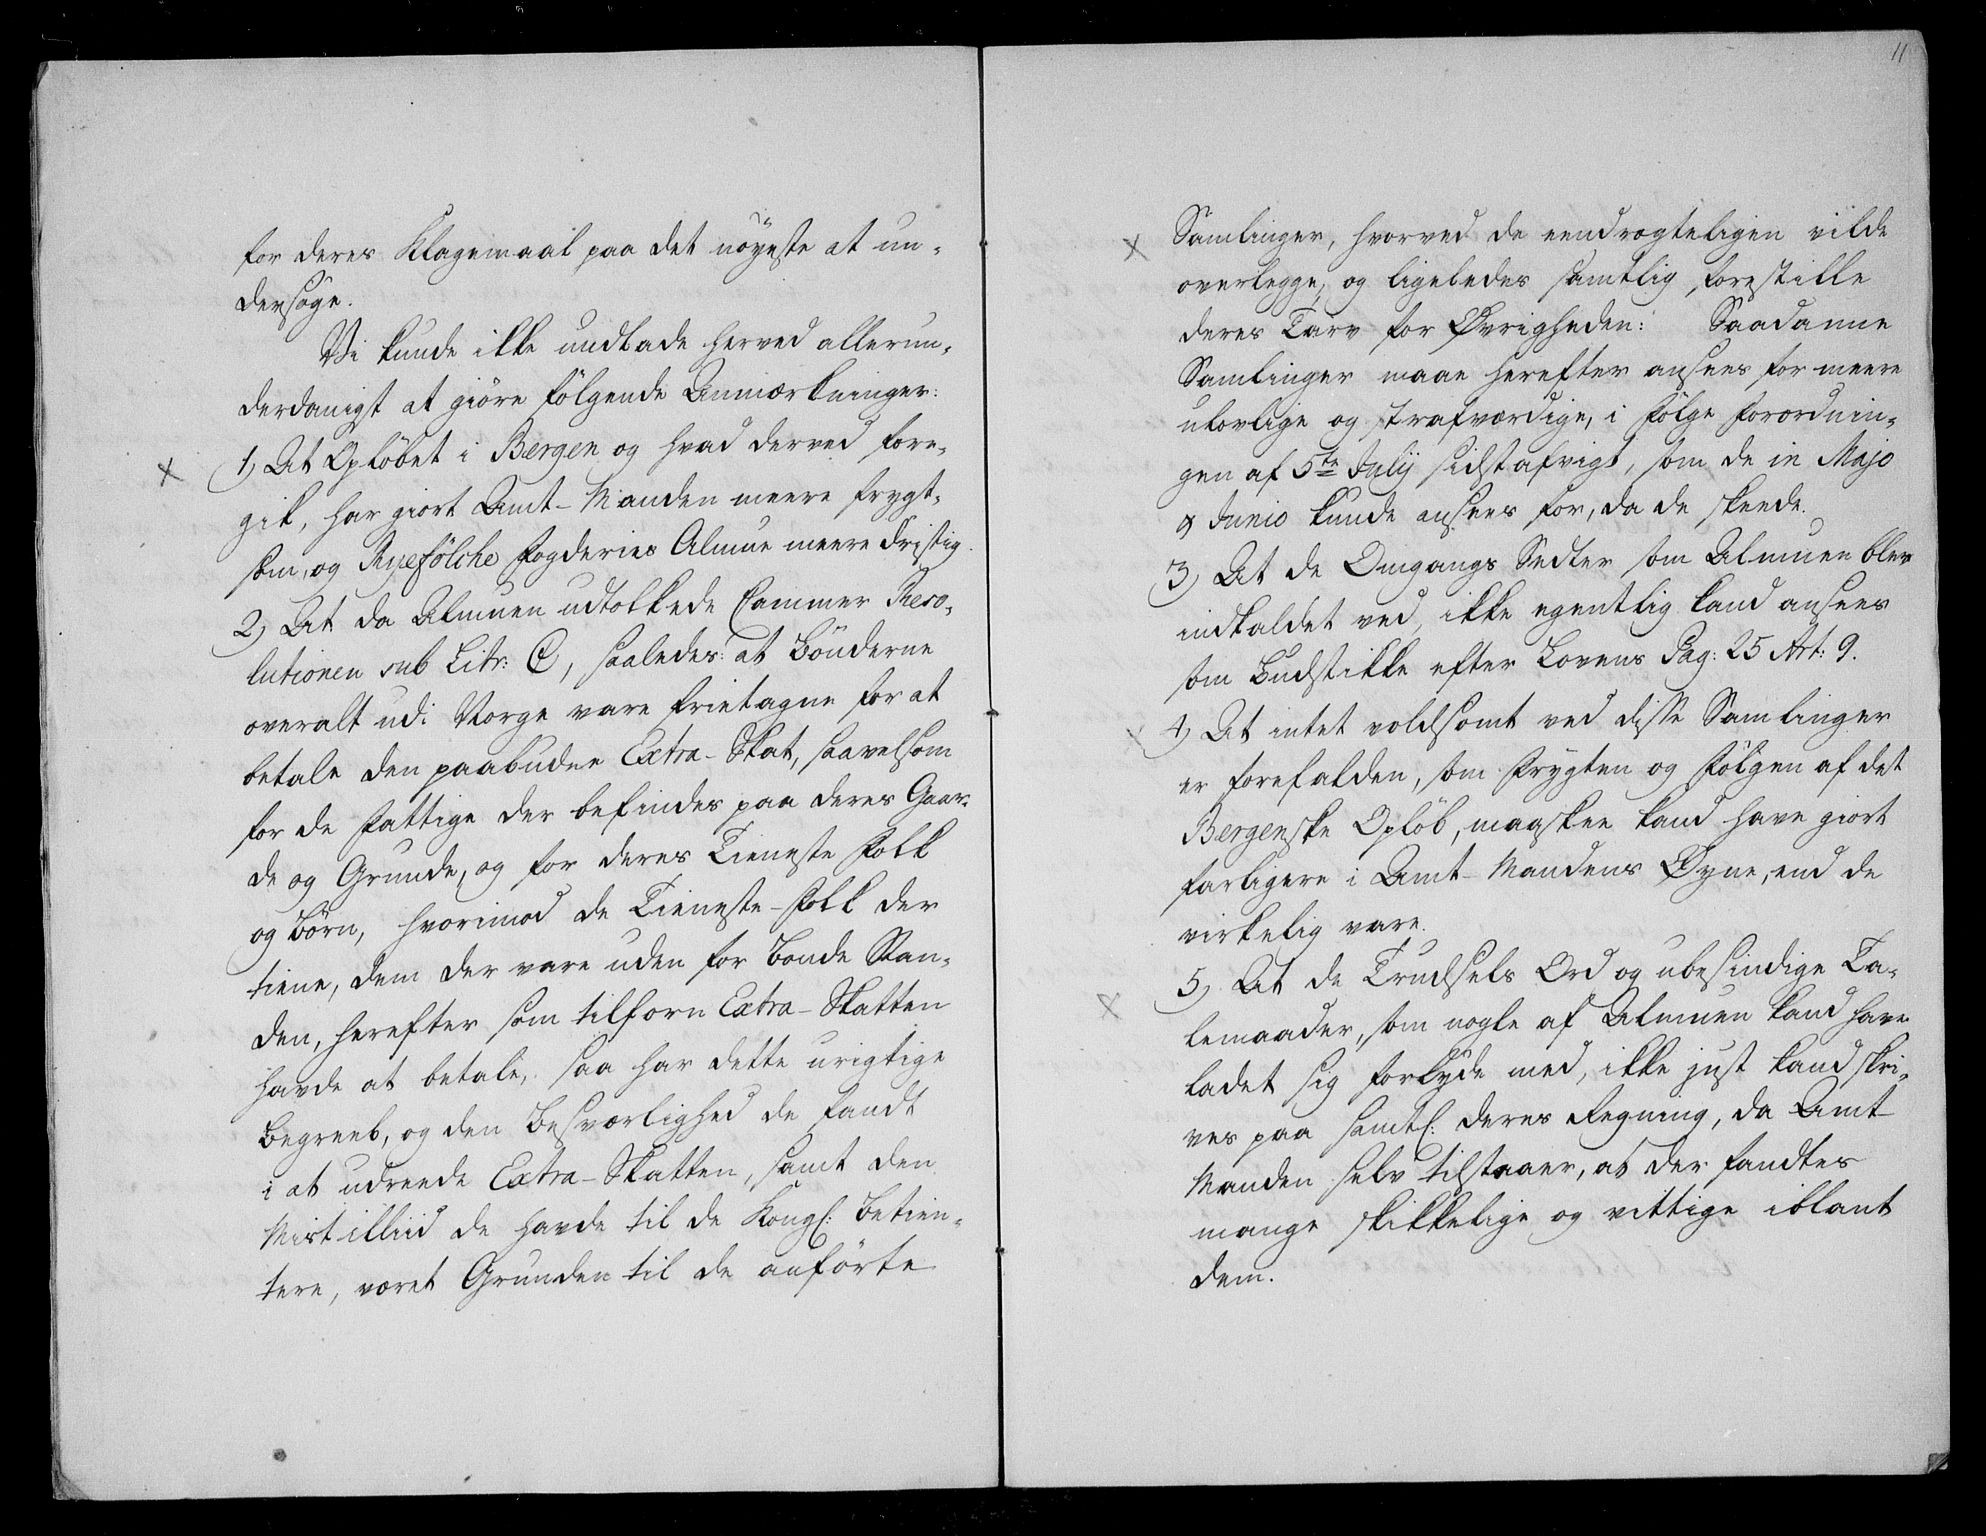 for deres Klagemaal paa det nöyeste at un-
dersöge.
Vi kunde ikke undlade herved allerun-
derdanigst at giöre fölgende Anmærkninger:
1, At Oplöbet i Bergen og hvad derved fore-
gik, har giort Amt-Manden meere frygt-
som, og Ryefölche Fogderies Almue meere dristig.
2, At da Almuen udtolkede Cammer Reso-
lutionen sub Litr: C, saaledes: at Bönderne
overalt udi Norge vare frietagne for at
betale den paabudne Extra-Skat, saavelsom
for de fattige der befindes paa deres Gaar-
de og Grunde, og for deres Tieneste Folk
og Børn, hvorimod de Tieneste-Folk der
tiene, dem der vare uden for Bonde Stan-
den, herefter som tilforn Extra-Skatten
havde at betale, saa har dette urigtige
Begreeb, og den Besværlighed de fandt
i at udreede Extra-Skatten, samt den
Mistilliid de havde til de Kongl: Betien-
tere, været Grunden til de anförte
11
Samlinger, hvorved de eendrægteligen vilde
overlegge, og ligeledes samtlig forestille
deres Tarv for Øvrigheden: Saadanne
Samlinger maae herefter ansees for meere
ulovlige og strafværdige, i fölge Forordnin-
gen af 5te Julij sidstafvigt, som de in Majo
& Junio kunde ansees for, da de skeede.
3, At de Omgangs Sedler som Almuen blev
indkaldet ved, ikke egentlig kand ansees
som Budstikke efter Lovens Pag: 25 Art: 9.
4, At intet voldsomt ved disse Samlinger
er forefalden, som Frygten og Fölgen af det
Bergenske Oplöb, maaskee kand have giort
farligere i Amt-Mandens Øyne, end de
virkelig vare.
5, At de Trudsels Ord og ubesindige Ta-
lemaader, som nogle af Almuen kand have
ladet sig forlyde med, ikke just kand skri-
ves paa samtl: deres Regning, da Amt-
Manden selv tilstaaer, at der fandtes
mange skikkelige og vittige iblant
dem.